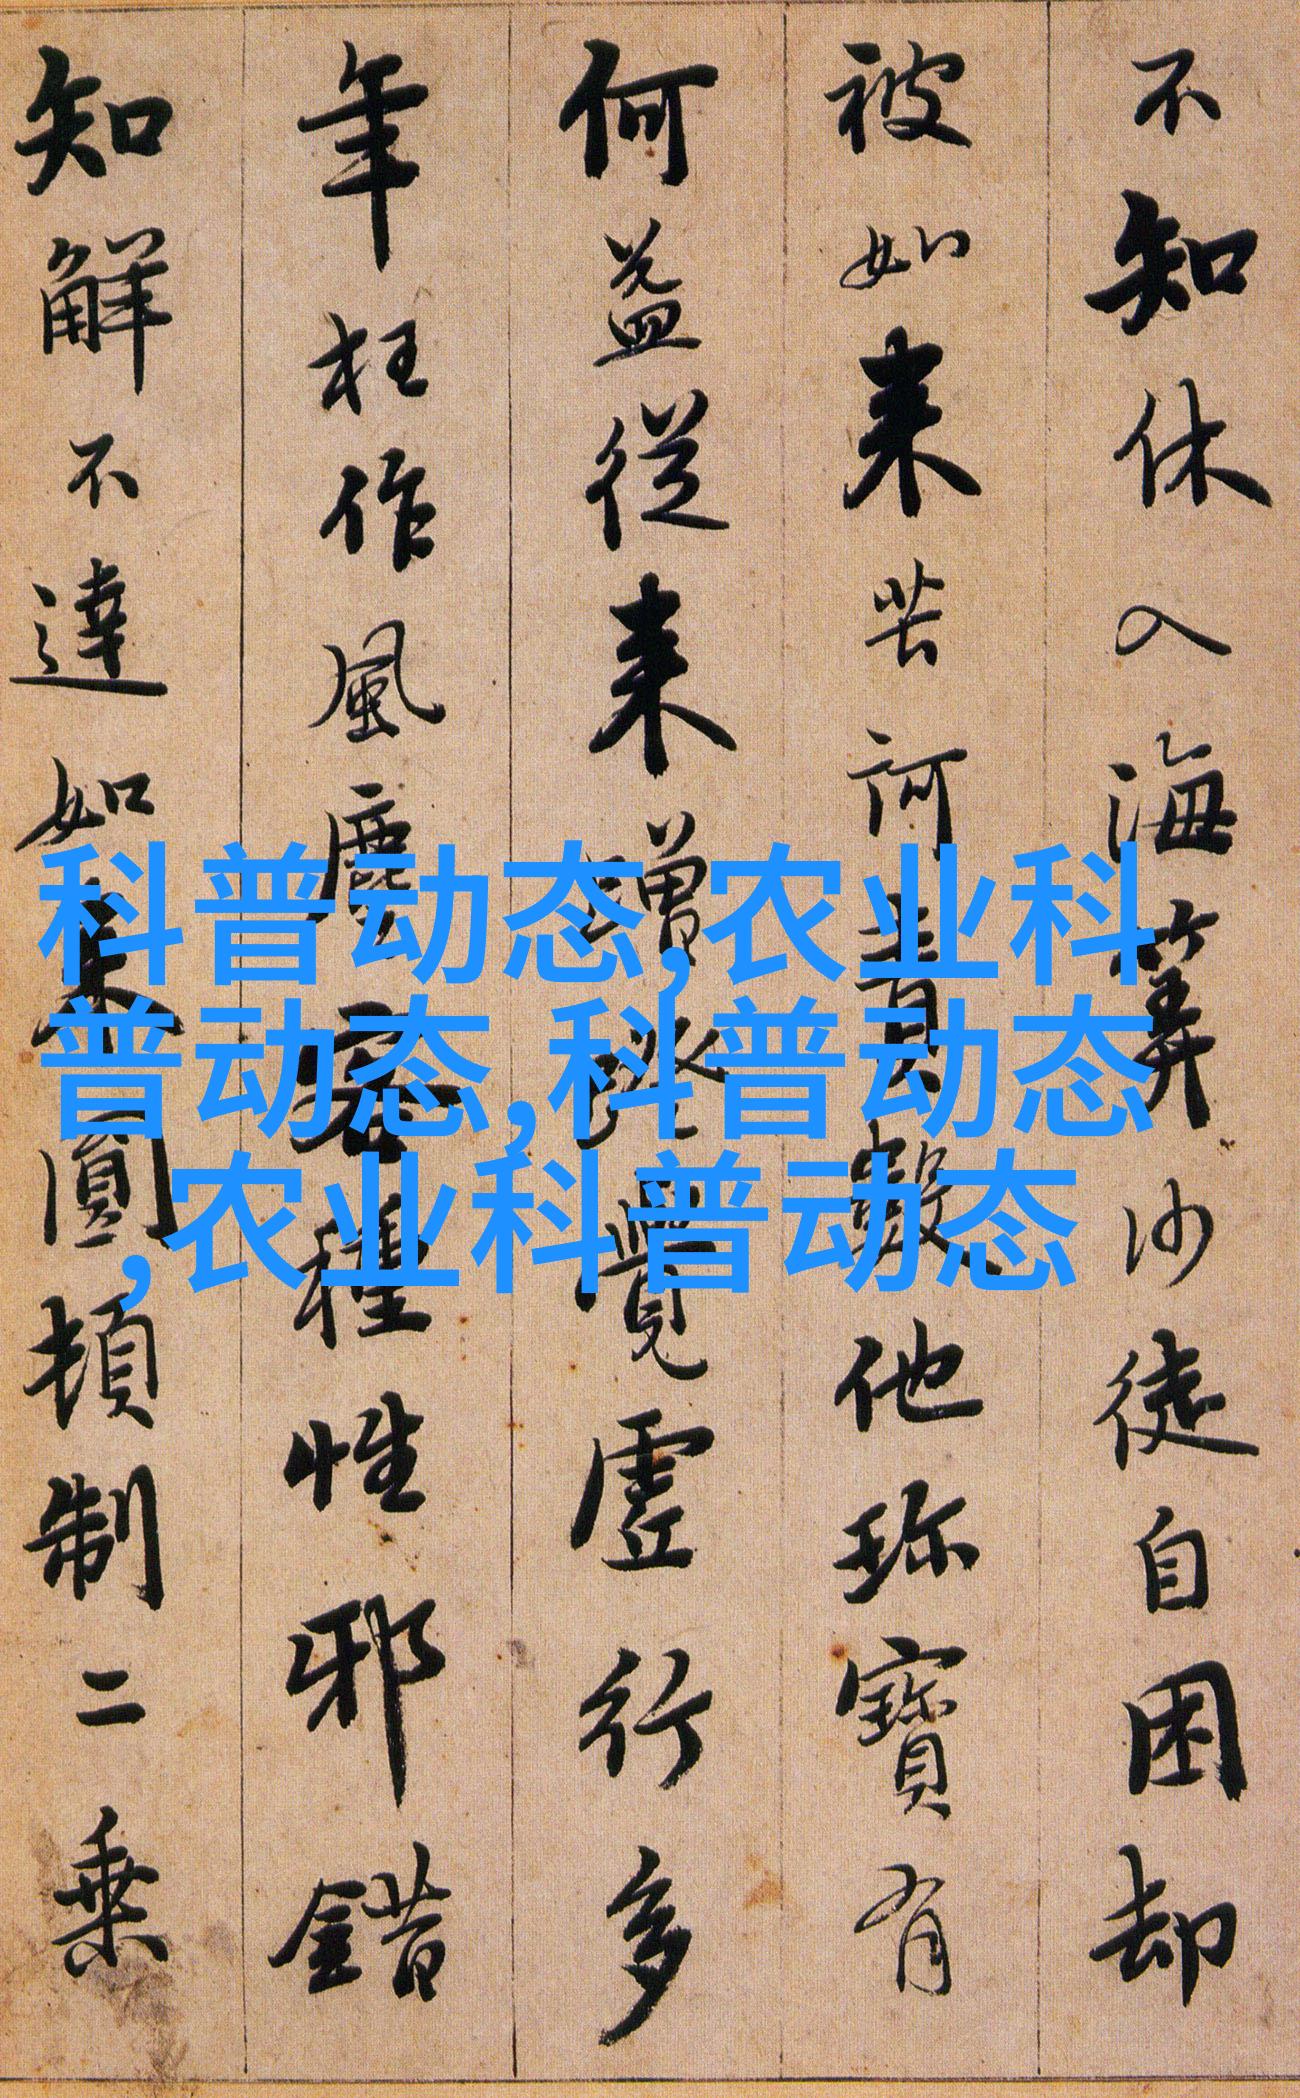 不知休入海筭沙徒自困却
被如来苦訶責數他珎寶有
何益從来蹭蹬覺虛行多
年枉作風塵客種性邪錯
知解不達如来圓頓制二乗
科普动态,农业科
普动态,科普动态
,农业科普动态